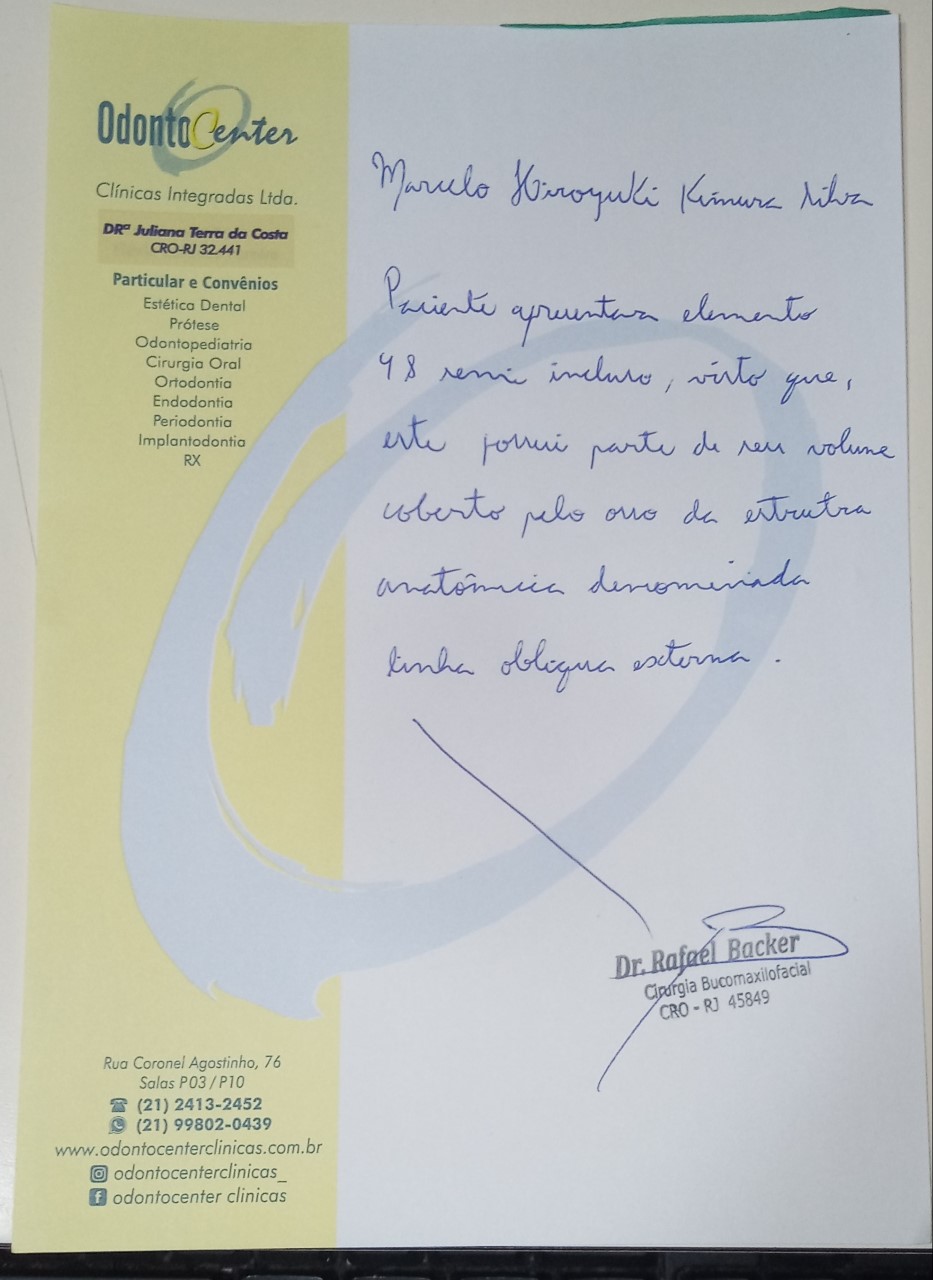 OdontoCenter
Clínicas Integradas Ltda.
DRª Juliana Terra da Costa
CRO-RJ 32.441
Particular e Convênios
Estética Dental
Prótese
Odontopediatria
Cirurgia Oral
Ortodontia
Endodontia
Periodontia
Implantodontia
RX
Marcelo Hiroyuki Kimura Silva
Paciente apresentava elemento
48 semi incluso, visto que,
este possui parte de seu volume
coberto pelo osso da estrutra
anatômica denominada
linha obliqua externa.
Dr. Rafael Backer
Cirurgia Bucomaxilofacial
CRO - RJ 45849
Rua Coronel Agostinho, 76
Salas P03 / P10
(21) 2413-2452
(21) 99802-0439
www.odontocenterclinicas.com.br
odontocenterclinicas_
odontocenter clinicas